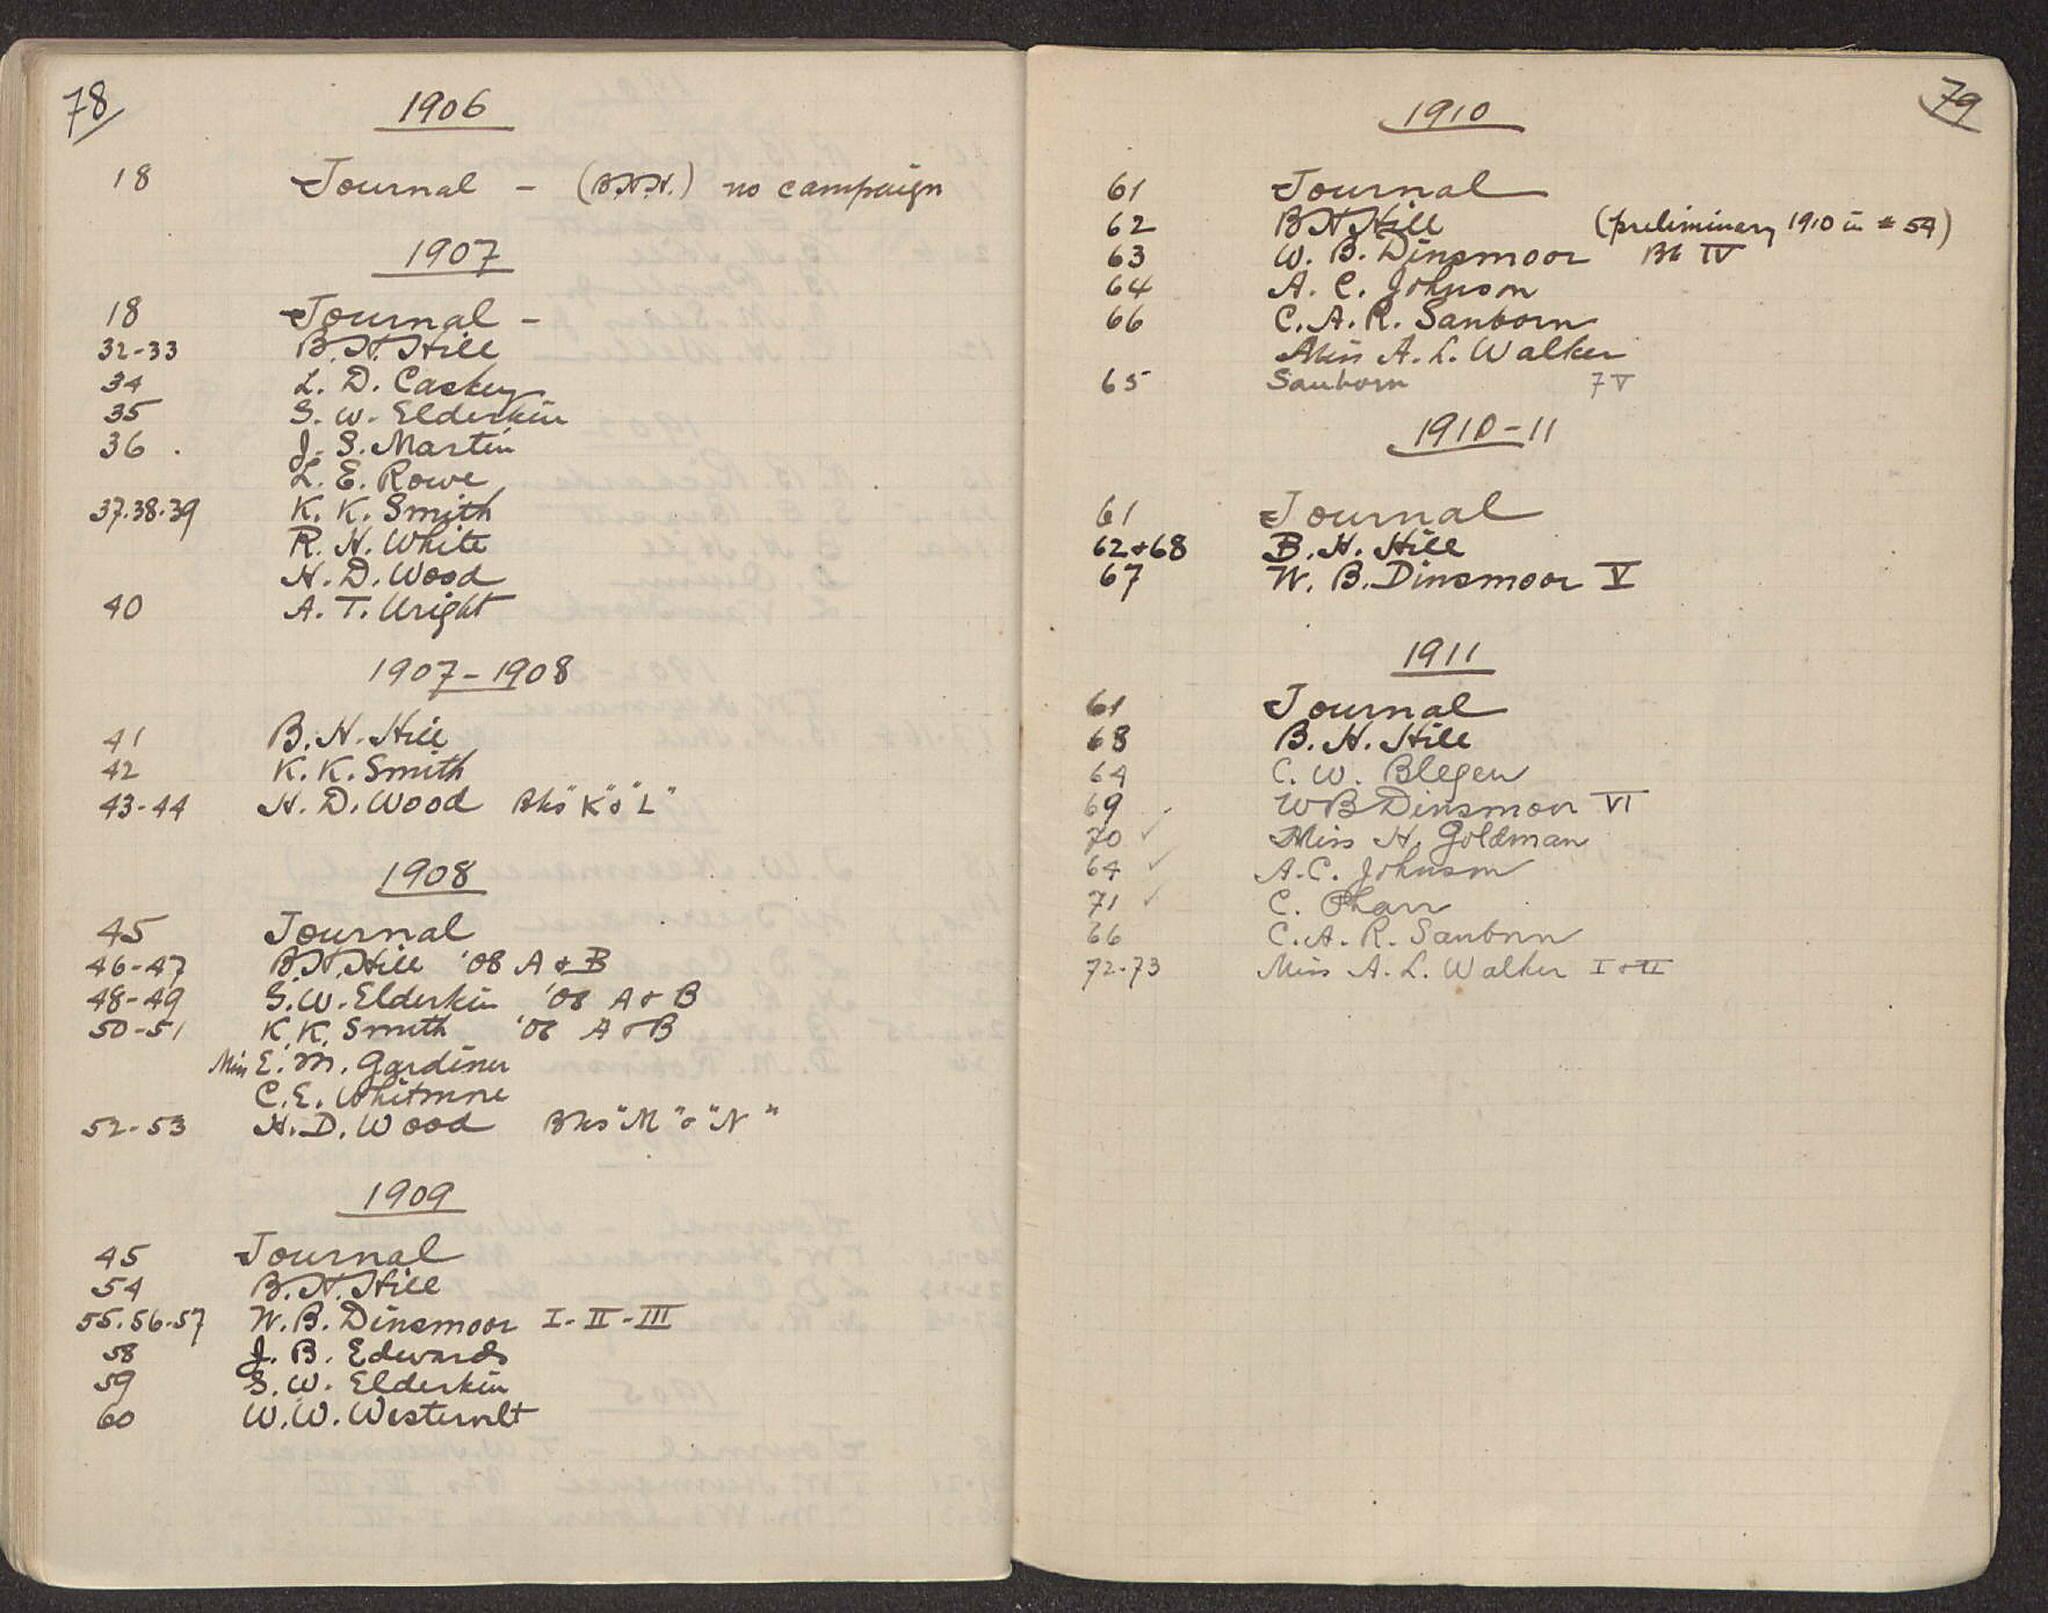 78
1906
18 Journal - (B.H.H.) no campaign
1907
18 Journal -
32-33 B.H. Hill
34 L. D. Caskey
35 G. W. Elderkin
36. J. S. Martin
L. E. Rowe
37.38.39 K. K. Smith
R. H. White
H. D. Wood
40 A. T. Wright
1907-1908
41 B. H. Hill
42 K. K. Smith
43-44 H. D. Wood Bks "K" & "L"
1908
45 Journal
46-47 B.H. Hill '08 A & B
48-49 G. W. Elderkin '08 A & B
50-51 K. K. Smith '08 A & B
Miss E. M. Gardiner
C. E. Whitmore
52-53 H. D. Wood Bks "M" & "N"
1909
45 Journal
54 B. H. Hill
55.56.57 W. B. Dinsmoor I-II-III
58 J. B. Edwards
59 G. W. Elderkin
60 W. W. Westervelt
79
1910
61 Journal
62 B H Hill (preliminary 1910 in # 54)
63 W. B. Dinsmoor Bk IV
64 A. C. Johnson
66 C. A. R. Sanborn
Miss A. L. Walker
65 Sanborn
1910-11
61 Journal
62+68 B. H. Hill
67 W. B. Dinsmoor V
1911
61 Journal
68 B. H. Hill
64 C. W. Blegen
69 W B Dinsmoor VI
70 ✓ Miss H. Goldman
64 ✓ A. C. Johnson
71 ✓ C. Pharr
66 C. A. R. Sanborn
72-73 Miss A. L. Walker I & II